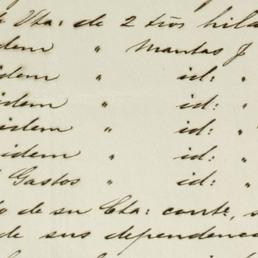 Vta: de 2 tiós hila
idem " Mantas J
idem " id: "
idem " id: "
idem " id: "
idem " id: "
Gastos " id: "
de su Cta: corrte, s
de sus dependenc